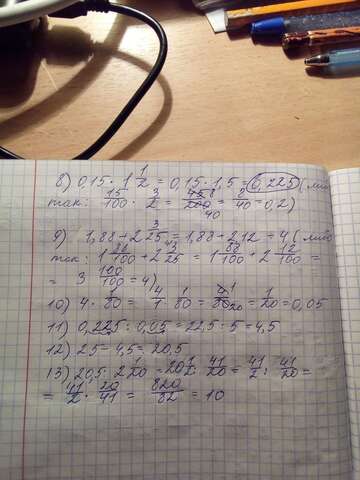 8) 0,15 · 1 1/2 = 0,15 · 1,5 = 0,225 (либо
так: 15/100 · 3/2 = 45/200 = 8/40 = 0,2)
9) 1,88 + 2 3/25 = 1,88 + 2,12 = 4 (либо
так: 1 88/100 + 2 3/25 = 1 88/100 + 2 12/100 =
= 3 100/100 = 4)
10) 4 · 1/80 = 4/1 · 1/80 = 4/80 = 1/20 = 0,05
11) 0,225 : 0,05 = 22,5 : 5 = 4,5
12) 25 - 4,5 = 20,5
13) 20,5 : 2 1/20 = 20 1/2 : 41/20 = 41/2 : 41/20 =
= 41/2 · 20/41 = 820/82 = 10